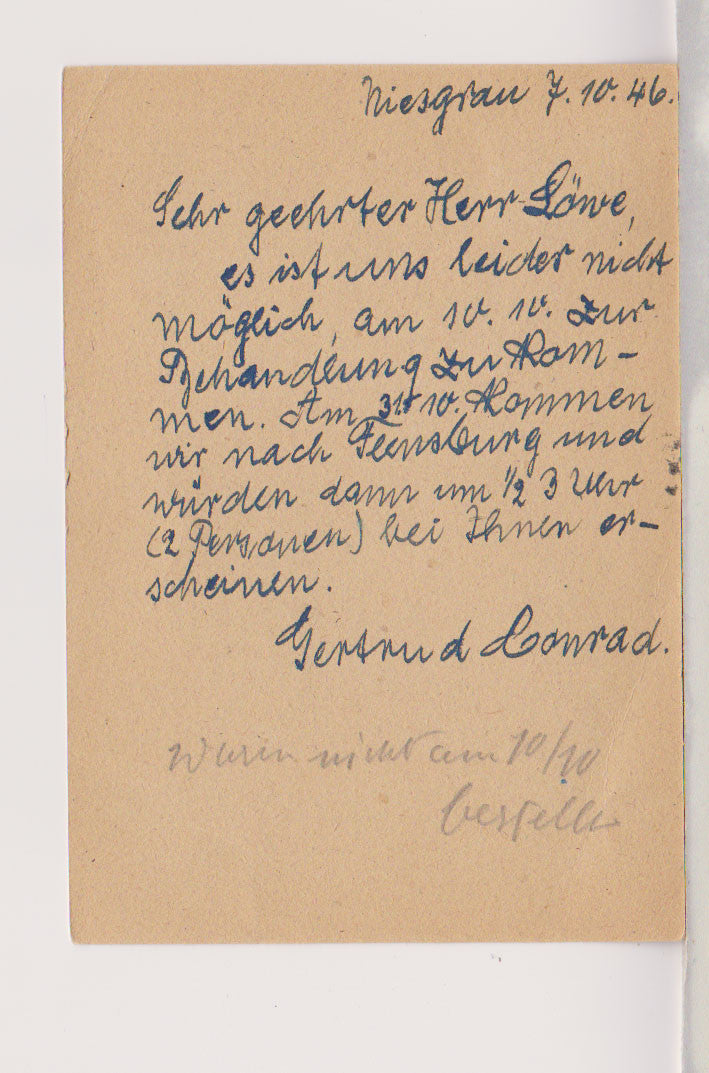 Niesgrau 7.10.46.
Sehr geehrter Herr Löwe,
es ist uns leider nicht
möglich, am 10. 10. zur
Behandlung zu kom-
men. Am 31. 10. kommen
wir nach Flensburg und
würden dann um ½ 3 Uhr
(2 Personen) bei Ihnen er-
scheinen.
Gertrud Conrad.
Waren nicht am 10/10
bestellt